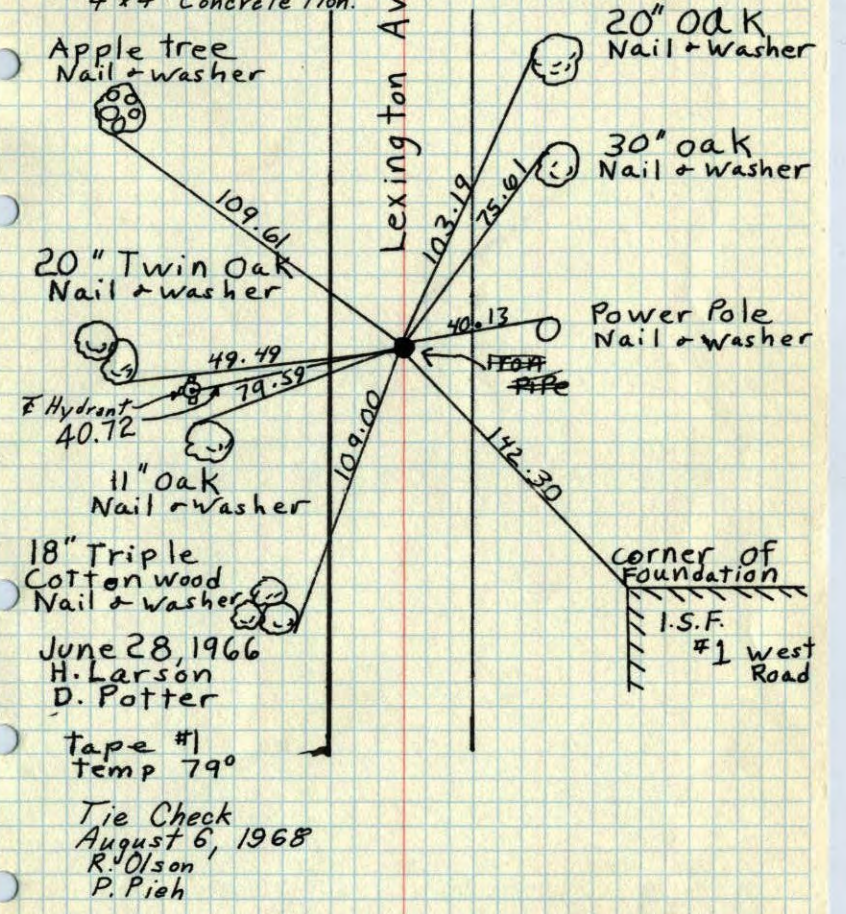 4"x4" Concrete Mon.
Apple tree
Nail & Washer
Lexington Av
20" Oak
Nail & Washer
30" oak
Nail & Washer
109.61
103.19
75.61
20" Twin Oak
Nail & washer
40.13
Power Pole
Nail & Washer
49.49
79.59
Iron
Pipe
Hydrant
40.72
109.00
142.30
11" Oak
Nail & Washer
18" Triple
Cotton wood
Nail & Washer
corner of
Foundation
I.S.F.
#1 West
Road
June 28, 1966
H. Larson
D. Potter
Tape #1
temp 79°
Tie Check
August 6, 1968
R. Olson
P. Pieh